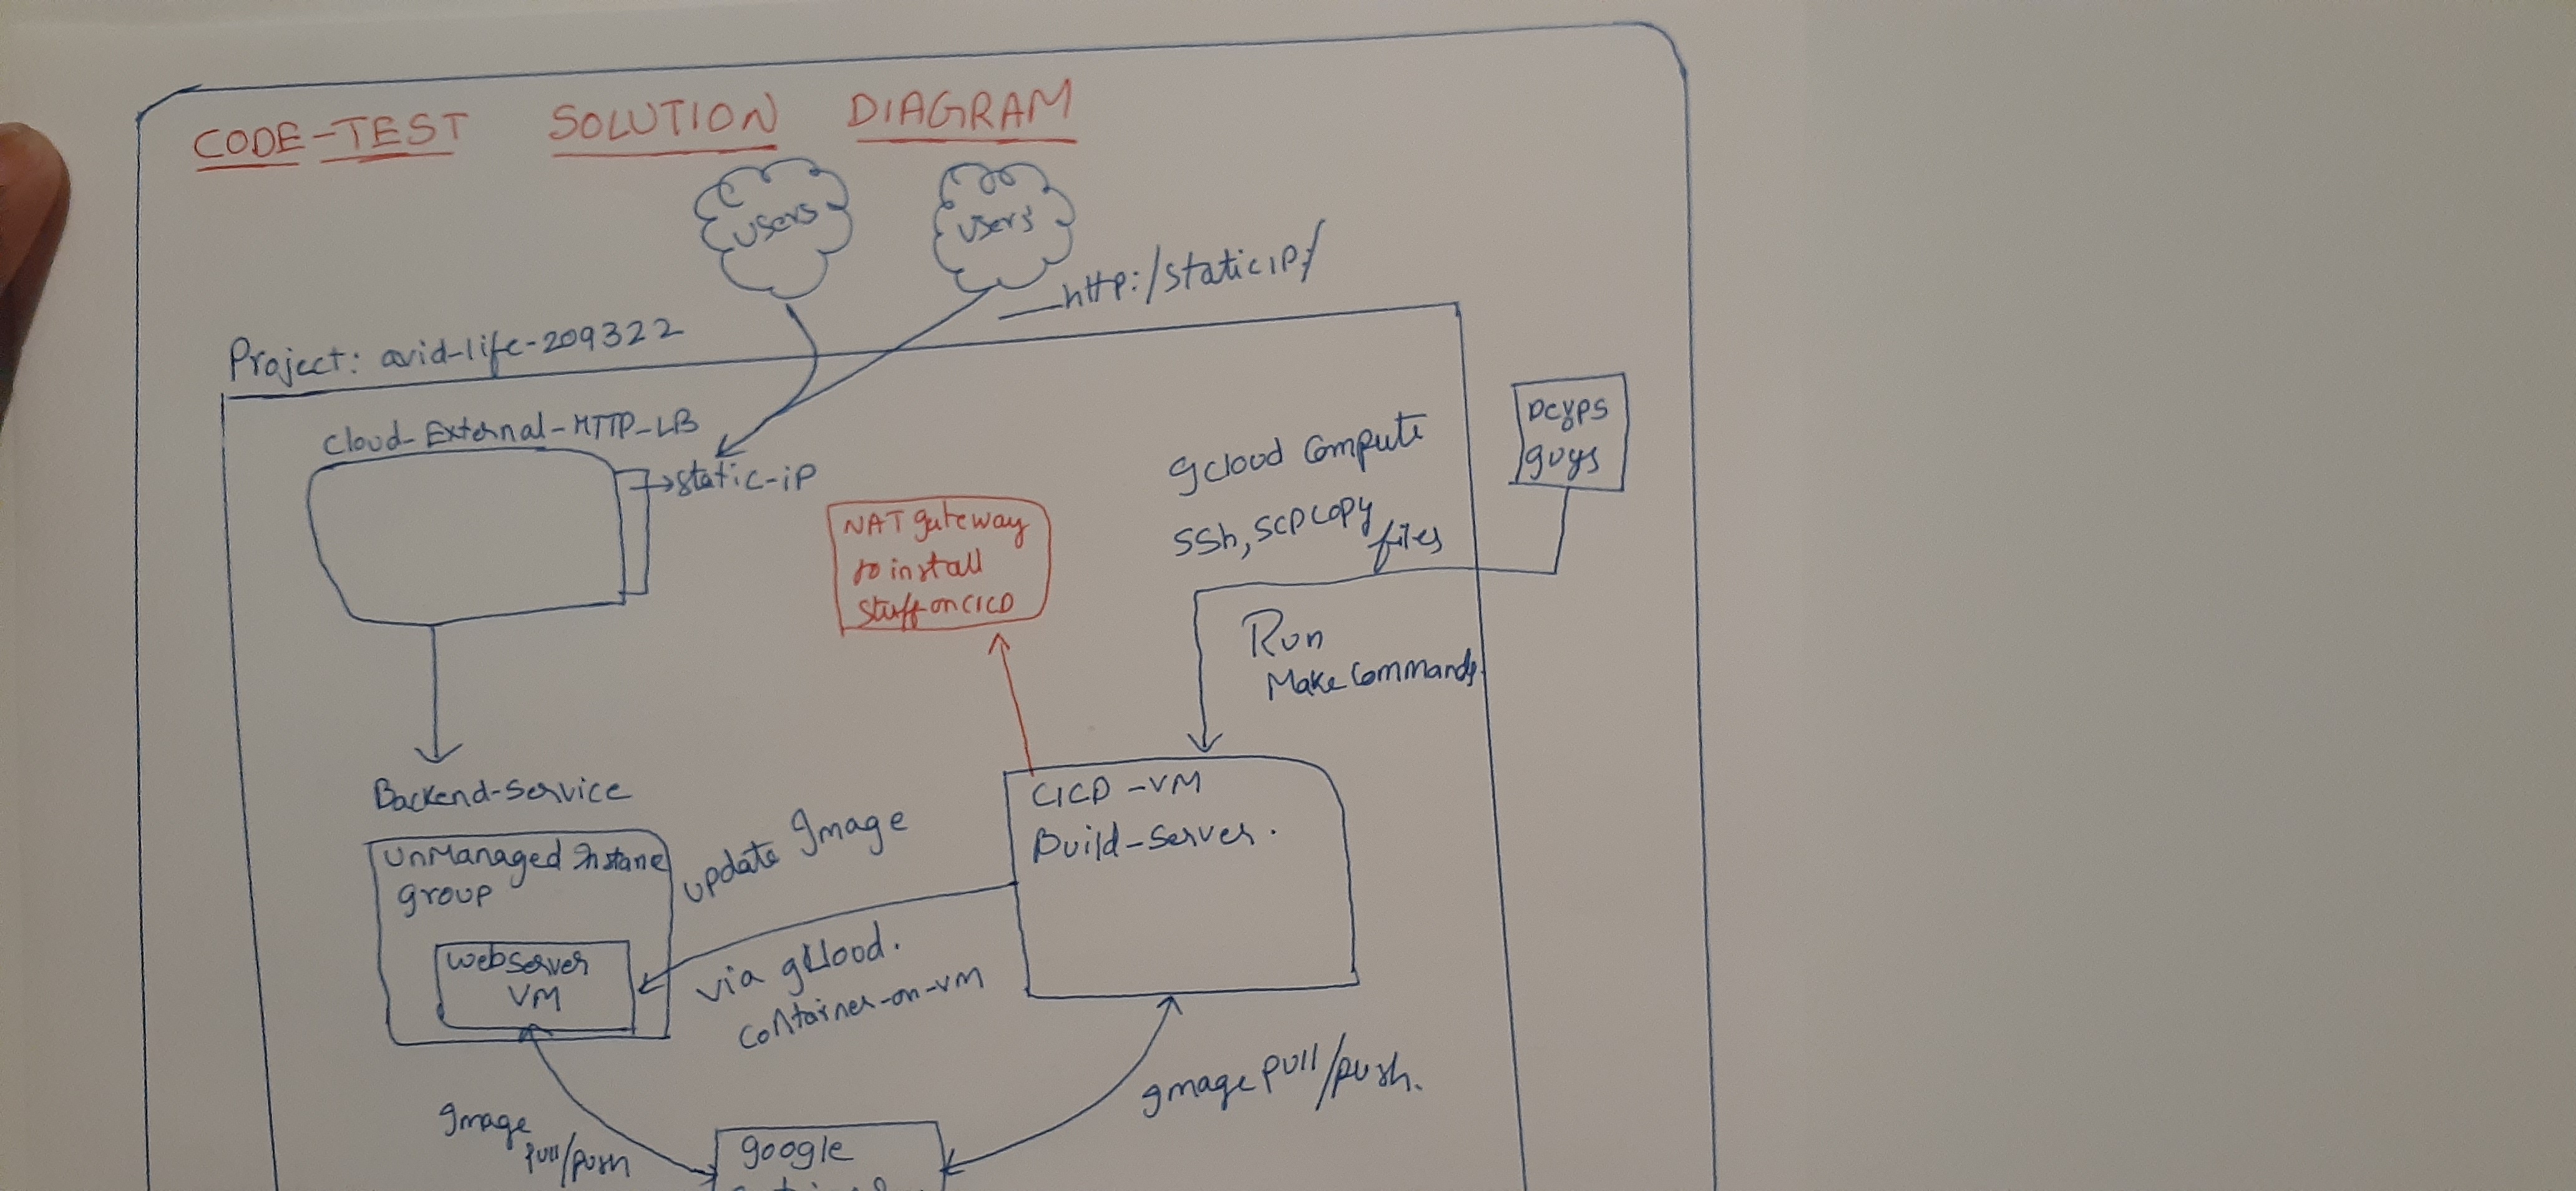 CODE-TEST SOLUTION DIAGRAM
users
users
http:/staticIP/
Project: avid-life-209322
Cloud-External-HTTP-LB
static-IP
Devps
guys
gcloud compute
ssh, scp copy
files
NAT gateway
to install
stuff on CICD
Run
Make Commands
Backend-Service
UnManaged Instane
group
webserver
VM
update Image
via gcloud.
container-on-vm
CICD-VM
Build-Server.
Image
pull/push
Image pull/push.
google